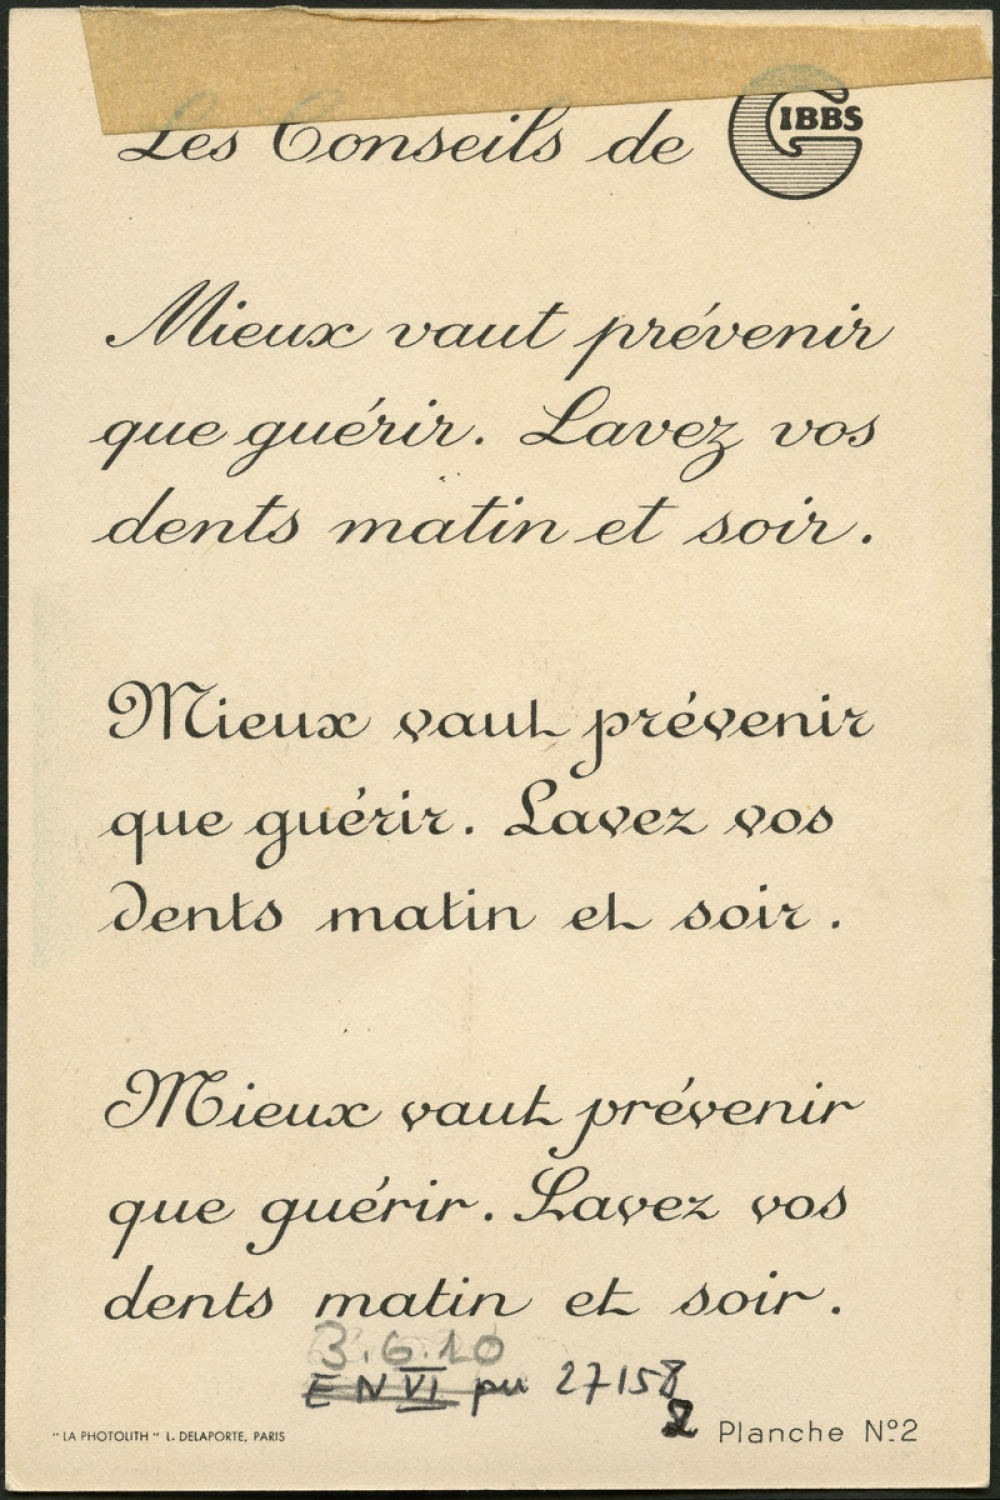 Les Conseils de GIBBS
Mieux vaut prévenir
que guérir. Lavez vos
dents matin et soir.
Mieux vaut prévenir
que guérir. Lavez vos
dents matin et soir.
Mieux vaut prévenir
que guérir. Lavez vos
dents matin et soir.
3.6.10
EN VI pu 27158
2
"LA PHOTOLITH" L. DELAPORTE, PARIS
Planche Nº2